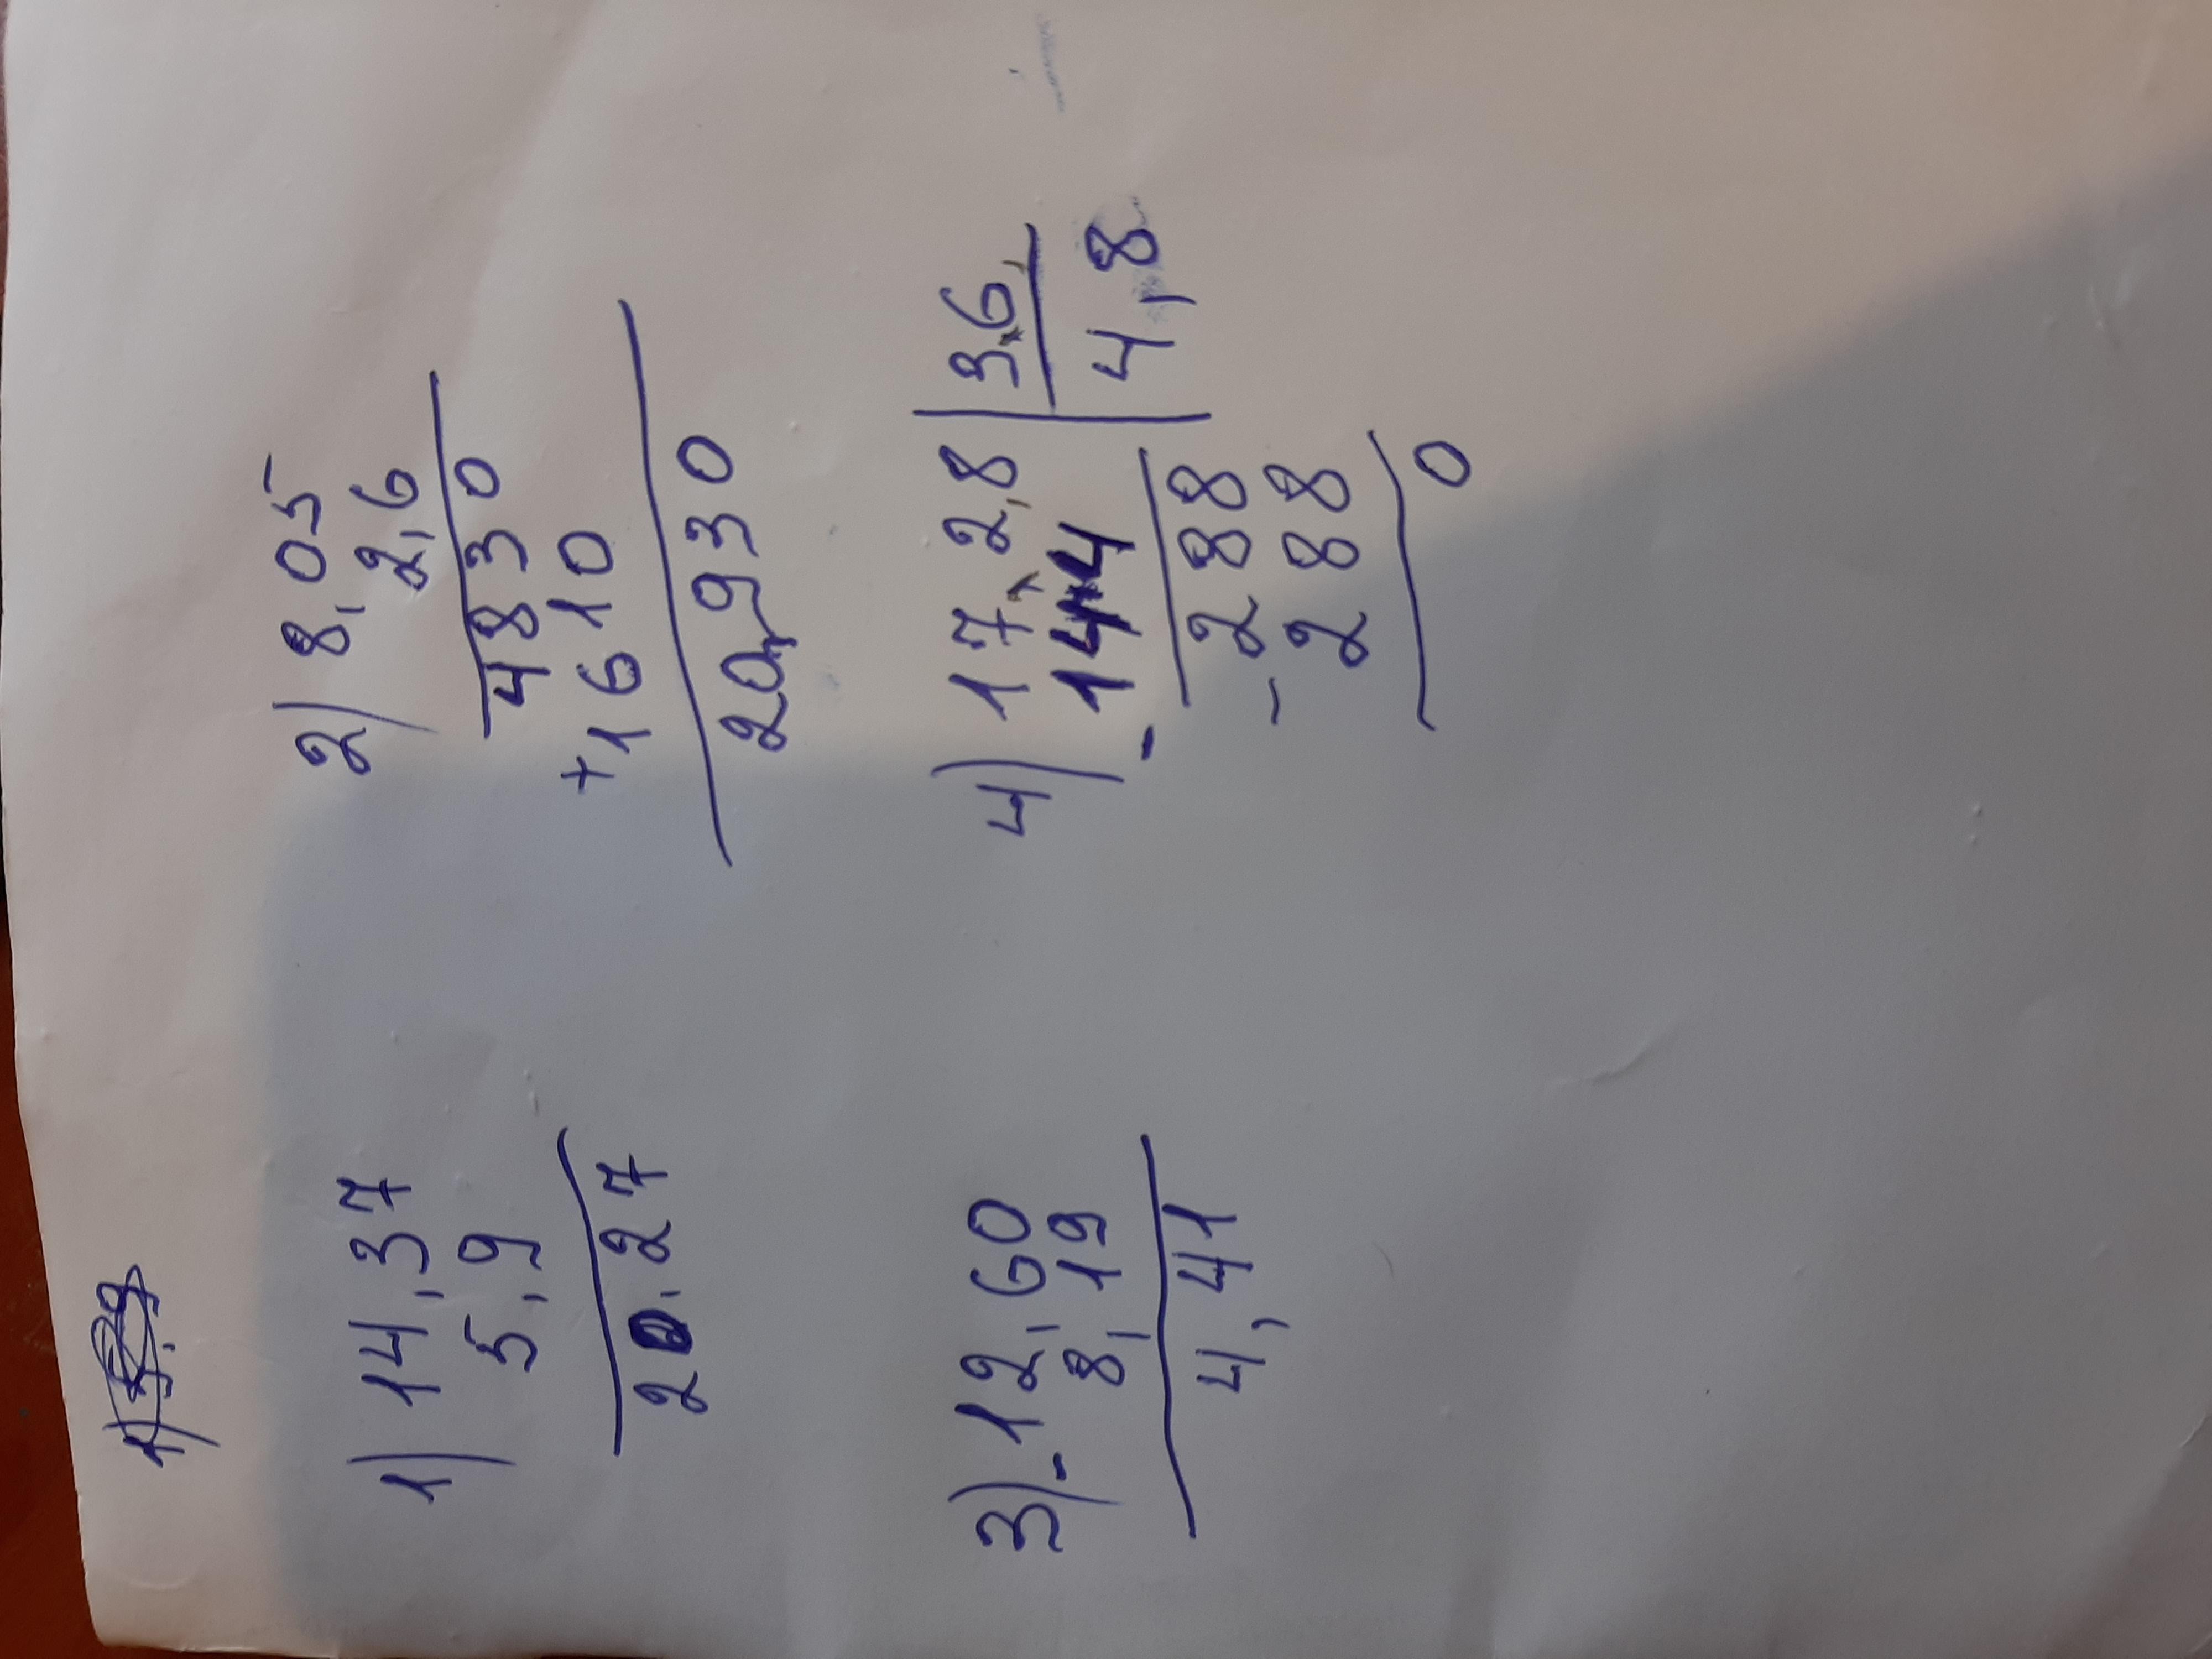 1) 14,37
5,9
20,27
2) 8,05
2,6
4830
+1610
20,930
3) -12,60
8,19
4,41
4) 17,2,8 | 3,6,
- 144 | 4,8
- 288
288
0